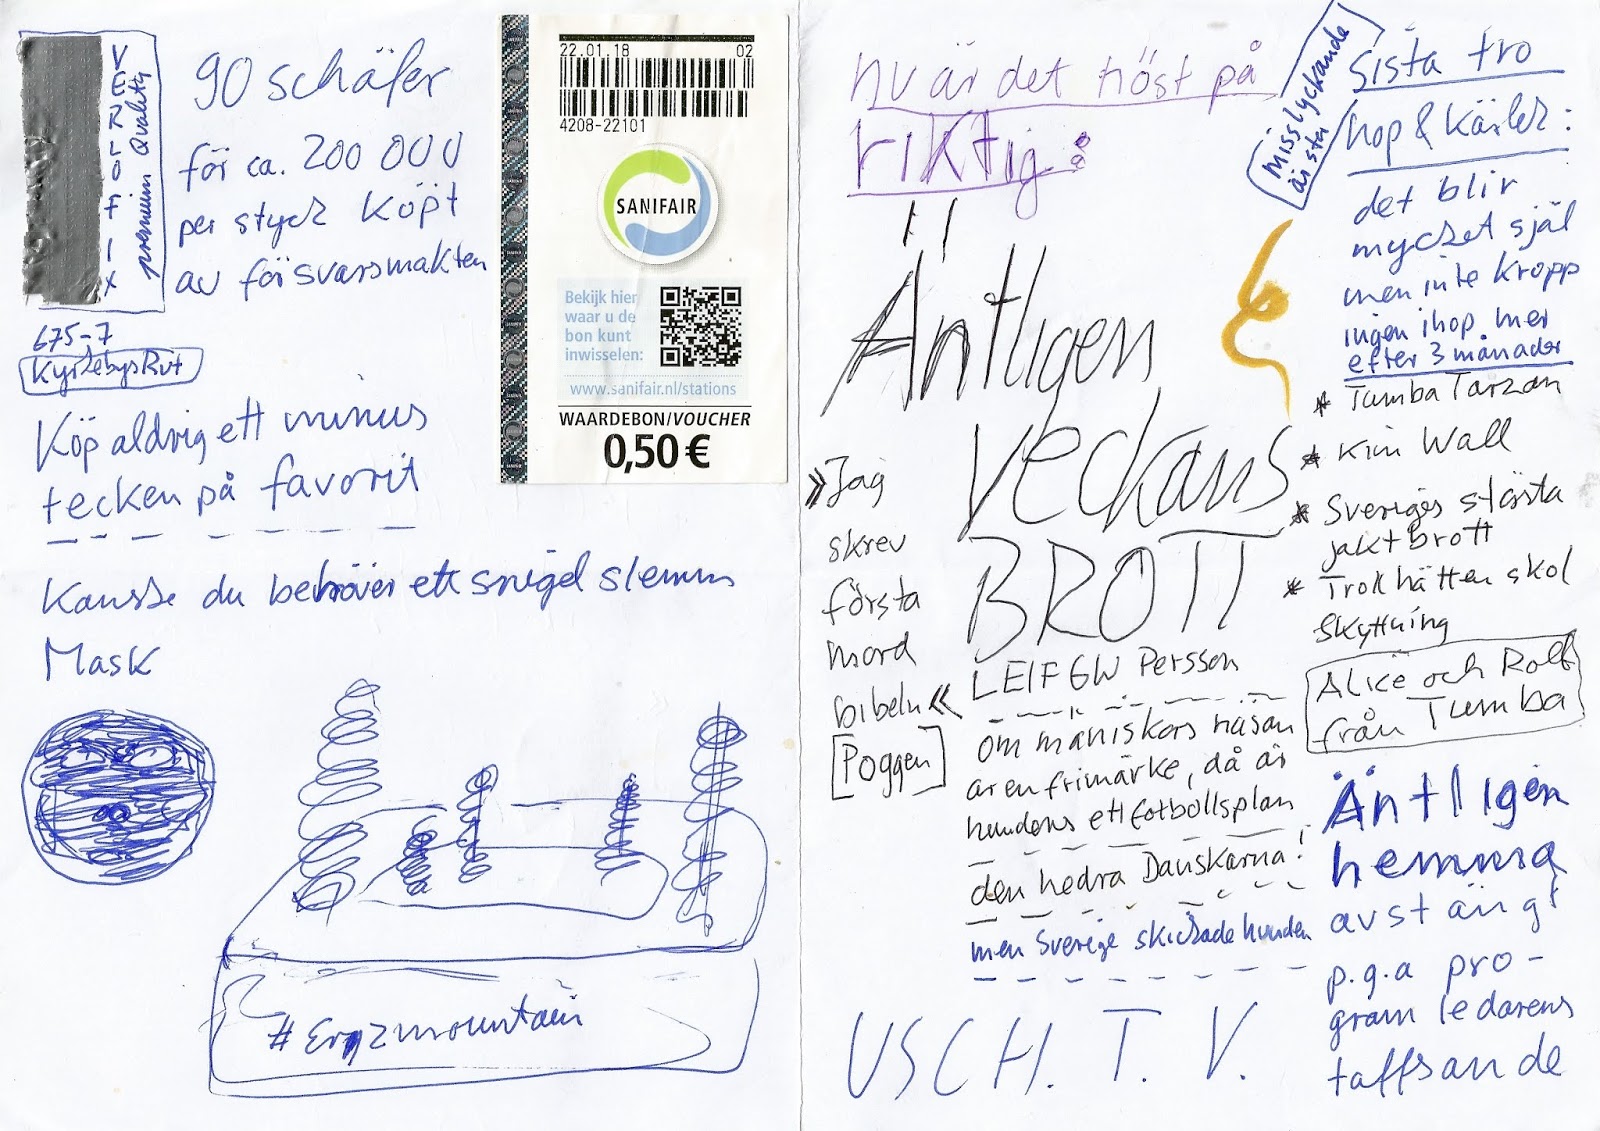 VERLOFIX
premium Quality
90 schäfer
för ca. 200 000
per styck köpt
av försvarsmakten
675-7
Köp aldrig ett minus
tecken på favorit
Kanske du behöver ett snigel slemm
Mask
#Ergzmountain
22.01.18 02
4208-22101
SANIFAIR
Bekijk hier
waar u de
bon kunt
inwisselen:
www.sanifair.nl/stations
WAARDEBON/VOUCHER
0,50 €
nu är det höst på
riktig:
Äntligen
veckans
BROTT
LEIF GW Persson
»Jag
skrev
första
mord
bibeln«
[Poggen]
om mäniskors näsan
är en frimärke, då är
hundens ett fotbollsplan
den hedra Danskarna!
men Sverige skickade hunden
USCH. T. V.
misslyckande
är sta
sista tro
hop & kärlek:
det blir
mycket själ
men inte kropp
ingen ihop mer
efter 3 månader
* Tumba Tarzan
* Kim Wall
* Sveriges största
jaktbrott
* Trollhätten skol
skyttning
Alice och Rolf
från Tumba
Äntligen
hemma
avstängt
p.g.a pro-
gram ledarens
taffsande